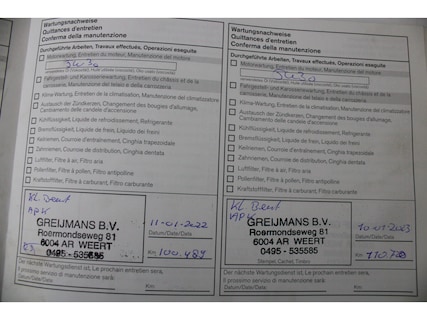 Wartungsnachweise
Quittances d'entretien
Conferma della manutenzione
Durchgeführte Arbeiten, Travaux effectués, Operazioni eseguite
Motorwartung, Entretien du moteur, Manutenzione del motore
5W30
Fahrgestell- und Karosseriewartung, Entretien du châssis et de la
carrosserie, Manutenzione del telaio e della carrozzeria
Klima-Wartung, Entretien de la climatisation, Manutenzione del climatizzatore
Austausch der Zündkerzen, Changement des bougies d'allumage,
Cambiamento delle candele d'accensione
Kühlflüssigkeit, Liquide de refroidissement, Refrigerante
Bremsflüssigkeit, Liquide de frein, Liquido dei freni
Keilriemen, Courroie d'entraînement, Cinghia trapezoidale
Zahnriemen, Courroie de distribution, Cinghia dentata
Luftfilter, Filtre à air, Filtro aria
Pollenfilter, Filtre à pollen, Filtro antipolline
Kraftstofffilter, Filtre à carburant, Filtro carburante
Kl. Beurt
APK
GREIJMANS B.V.
Roermondseweg 81
6004 AR WEERT
0495 - 535585
11-01-2022
Datum/Date/Data
Km 100.487
Der nächste Wartungsdienst ist, Le prochain entretien sera,
Il prossimo servizio di manutenzione sarà:
Datum/Date/Data
Km
Wartungsnachweise
Quittances d'entretien
Conferma della manutenzione
Durchgeführte Arbeiten, Travaux effectués, Operazioni eseguite
Motorwartung, Entretien du moteur, Manutenzione del motore
5W30
Fahrgestell- und Karosseriewartung, Entretien du châssis et de la
carrosserie, Manutenzione del telaio e della carrozzeria
Klima-Wartung, Entretien de la climatisation, Manutenzione del climatizzatore
Austausch der Zündkerzen, Changement des bougies d'allumage,
Cambiamento delle candele d'accensione
Kühlflüssigkeit, Liquide de refroidissement, Refrigerante
Bremsflüssigkeit, Liquide de frein, Liquido dei freni
Keilriemen, Courroie d'entraînement, Cinghia trapezoidale
Zahnriemen, Courroie de distribution, Cinghia dentata
Luftfilter, Filtre à air, Filtro aria
Pollenfilter, Filtre à pollen, Filtro antipolline
Kraftstofffilter, Filtre à carburant, Filtro carburante
Kl. Beurt
APK
GREIJMANS B.V.
Roermondseweg 81
6004 AR WEERT
0495 - 535585
Stempel, Cachet, Timbro
10-01-2023
Datum/Date/Data
Km
Der nächste Wartungsdienst ist, Le prochain entretien sera,
Il prossimo servizio di manutenzione sarà:
Datum/Date/Data
Km